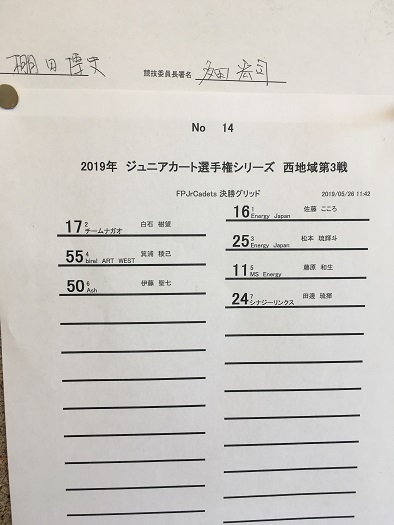 棚田 博史 競技委員長署名 多田 宏司
No 14
2019年 ジュニアカート選手権シリーズ 西地域第3戦
FPJrCadets 決勝グリッド 2019/05/26 11:42
16 1 佐藤 こころ
Energy Japan
17 2 白石 樹望
チームナガオ
25 3 松本 琉輝斗
Energy Japan
55 4 箕浦 稜己
birel ART WEST
11 5 藤原 和生
MS Energy
50 6 伊藤 聖七
Ash
24 7 田邊 琉揮
シナジーリンクス